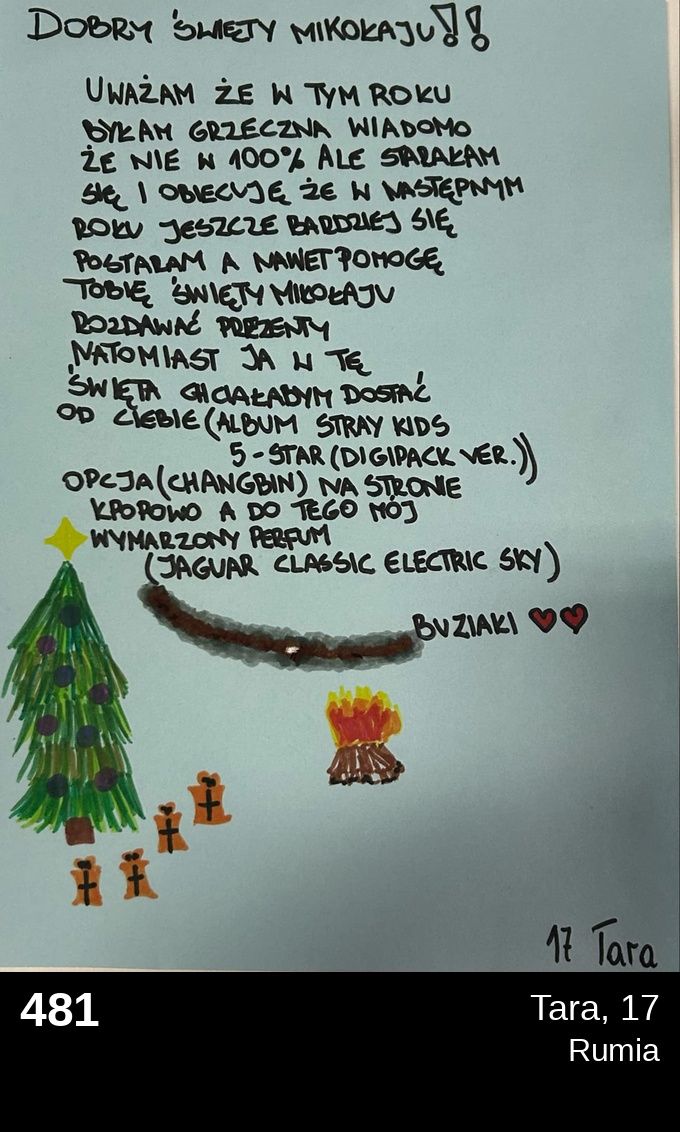 DOBRY ŚWIĘTY MIKOŁAJU!!
UWAŻAM ŻE W TYM ROKU
BYŁAM GRZECZNA WIADOMO
ŻE NIE W 100% ALE STARAŁAM
SIĘ I OBIECUJĘ ŻE W NASTĘPNYM
ROKU JESZCZE BARDZIEJ SIĘ
POSTARAM A NAWET POMOGĘ
TOBIĘ ŚWIĘTY MIKOŁAJU
ROZDAWAĆ PREZENTY
NATOMIAST JA W TĘ
ŚWIĘTA CHCIAŁABYM DOSTAĆ
OD CIEBIE (ALBUM STRAY KIDS
5-STAR (DIGIPACK VER.))
OPCJA (CHANGBIN) NA STRONIE
KPOPOWO A DO TEGO MÓJ
WYMARZONY PERFUM
(JAGUAR CLASSIC ELECTRIC SKY)
BUZIAKI
17 Tara
481
Tara, 17
Rumia